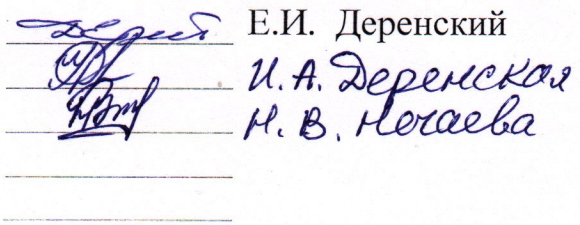 Е.И. Деренский
И.А. Деренская
Н.В. Нечаева